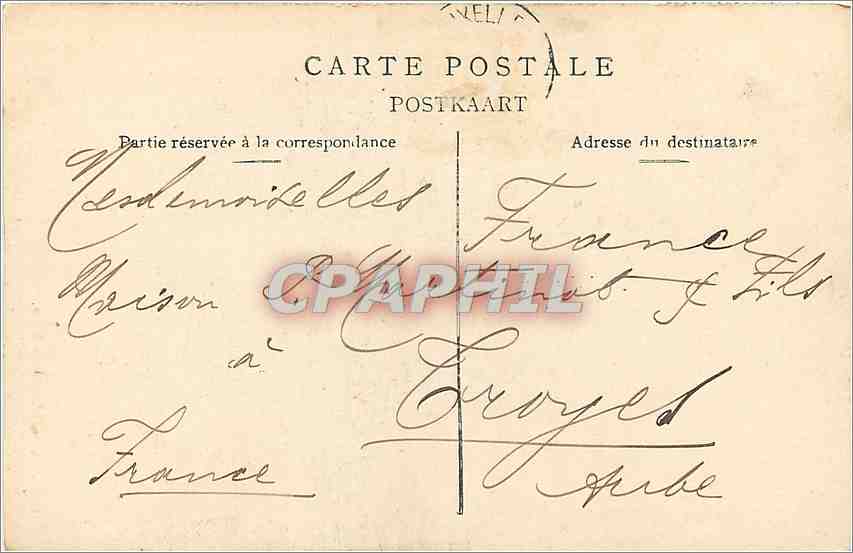 XELL
CARTE POSTALE
POSTKAART
Partie réservée à la correspondance
Adresse du destinataire
Mesdemoiselles
France
Maison P. Martinot & Fils
à
Troyes
France
Aube
CPAPHIL